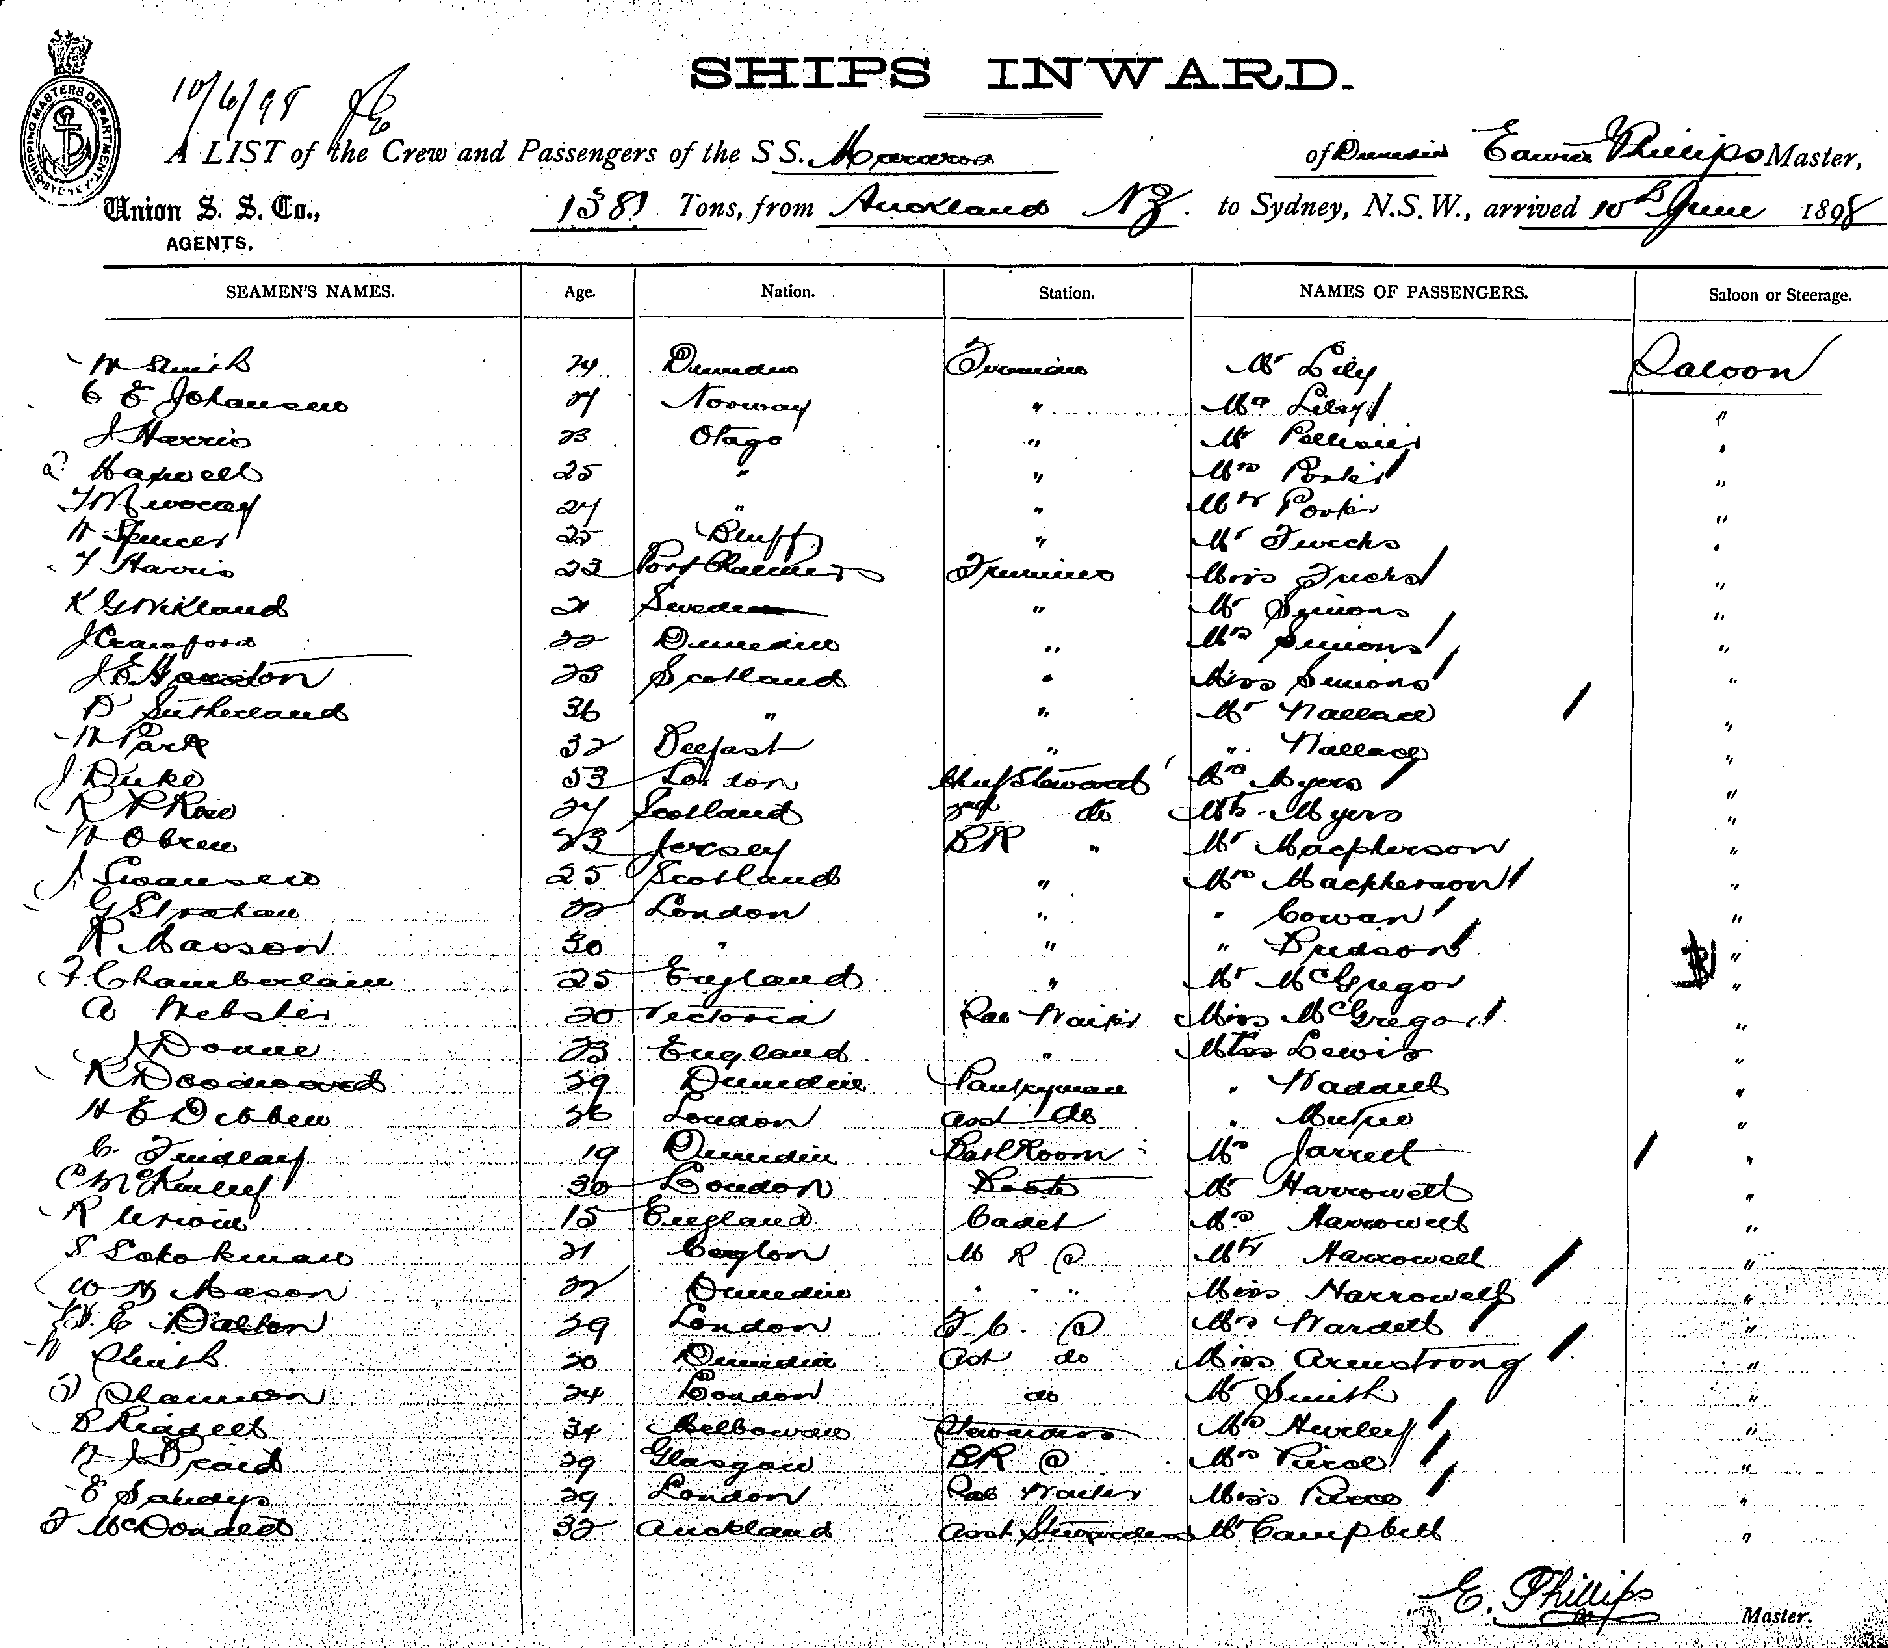 SHIPS INWARD.
10/6/98
A LIST of the Crew and Passengers of the S S. Mararoa of Dunedin Edwin Phillips Master,
Union S. S. Co., 1381 Tons, from Auckland NZ. to Sydney, N.S.W., arrived 10th June 1898
AGENTS.
SEAMEN'S NAMES. Age. Nation. Station. NAMES OF PASSENGERS. Saloon or Steerage.
W Smith 24 Dunedin Trimmer Mr Lily Saloon
C E Johansen 27 Norway " Mrs Lily "
J Harris 23 Otago " Mr "
Maxwell 25 " " Mrs Porter "
24 " " Mr Porter "
W Spencer 25 Bluff " Mr "
T Harris 23 Port Chalmers Trimmer Miss Fuchs "
K G Wikland 21 Sweden " Mr Simons "
J Crawford 22 Dunedin " Mrs Simons "
J E 23 Scotland " Miss Simons "
D Sutherland 36 " " Mr Wallace "
W Park 32 Belfast " " Wallace "
J Duke 53 London Chief Steward Mrs Myers "
R Rose 27 Scotland 2nd do Myers "
W Obrien 23 Jersey BR " Mr Macpherson "
J Swansen 25 Scotland " Mrs Macpherson "
G Strahan 22 London " " Cowan "
R Masson 30 " " " Hudson "
F Chamberlain 25 England " Mr McGregor "
A Webster 20 Victoria Waiter Miss McGregor "
Doane 23 England " Miss Lewis "
R Woodward 29 Dunedin Pantryman " Waddell "
H E Dibben 26 London asst do " "
C. Findlay 19 Dunedin Bath Room Mrs Jarrett "
C McKinley 30 London Boots Mr Harrowell "
R 15 England Cadet Mrs Harrowell "
S Lokokman 21 Ceylon M R @ Mr Harrowell "
W H Mason 22 Dunedin " " Miss Harrowell "
W. C Dalton 29 London F. C. @ Mrs Wardell "
W Smith 20 Dunedin Ast do Miss Armstrong "
Shannon 24 London do Mr Smith "
B Riddell 34 Melbourne Stewardess Mrs Hurley "
W J Praid 29 Glasgow BR @ Mrs "
E Sandys 29 London Waiter Miss "
McDonald 32 Auckland Asst Stewardess Mr Campbell "
E. Phillips
Master.